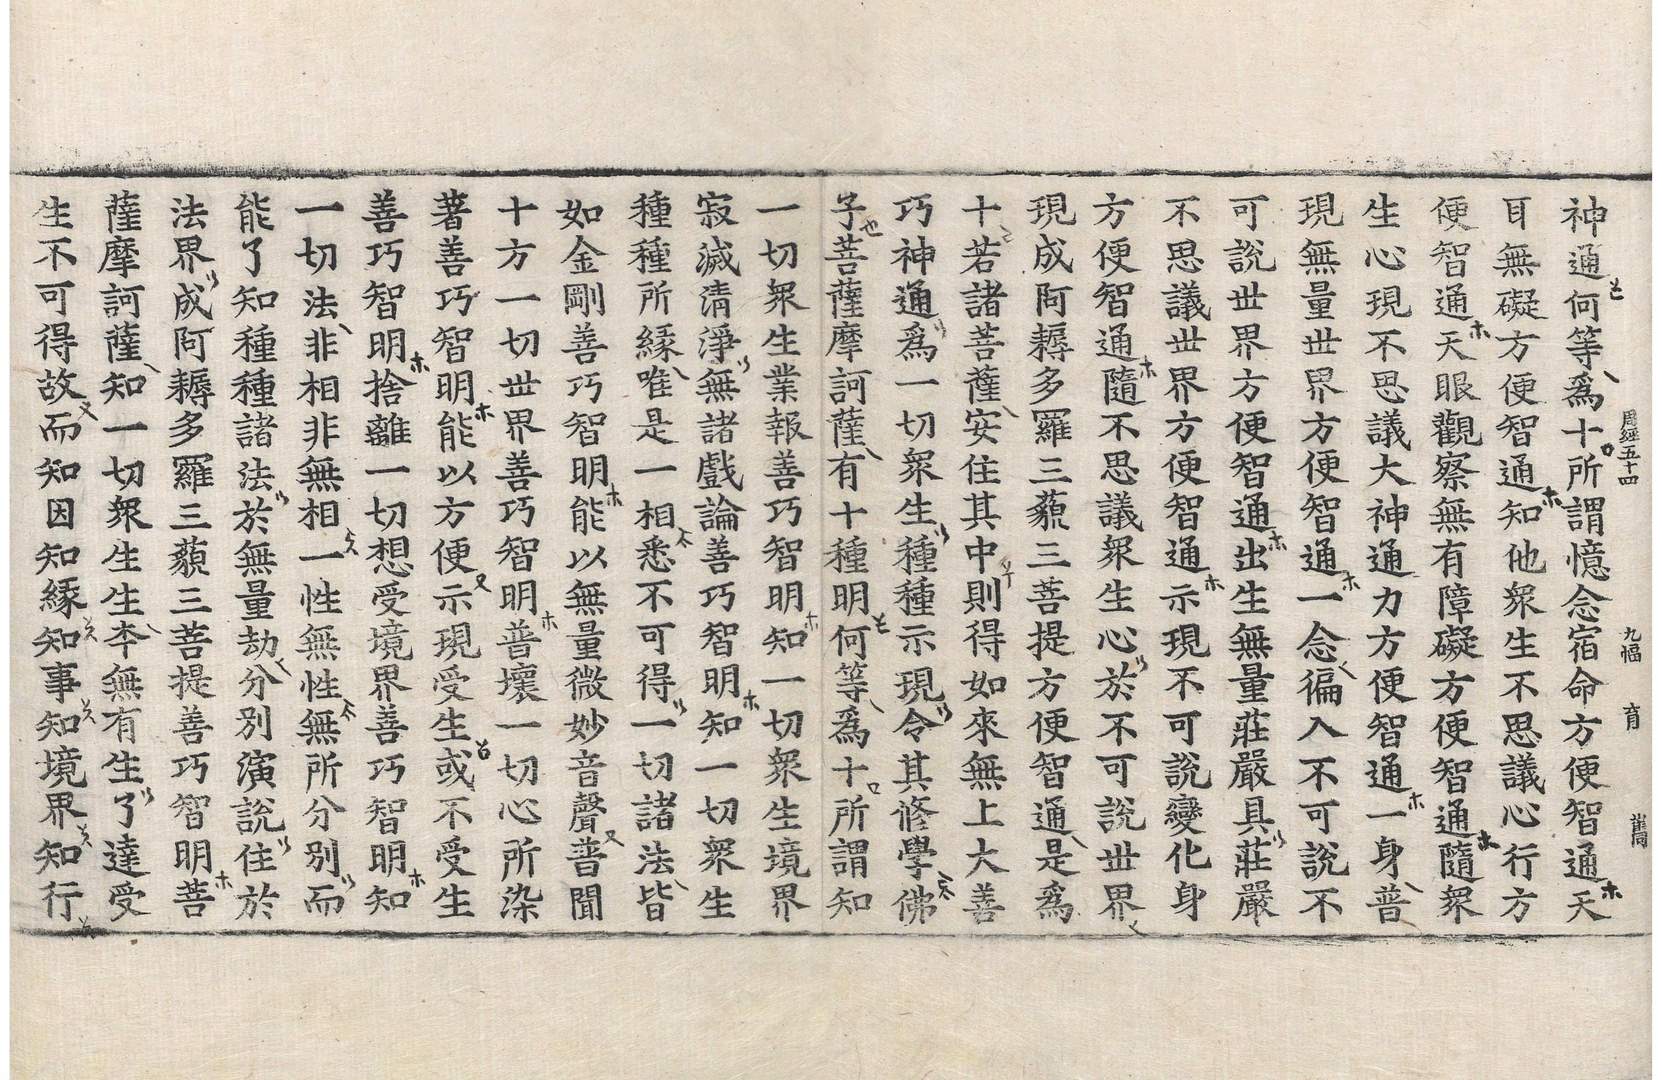 周經五十四 九幅 育
神通何等爲十所謂憶念宿命方便智通天
耳無礙方便智通知他衆生不思議心行方
便智通天眼觀察無有障礙方便智通隨衆
生心現不思議大神通力方便智通一身普
現無量世界方便智通一念徧入不可說不
可說世界方便智通出生無量莊嚴具莊嚴
不思議世界方便智通示現不可說變化身
方便智通隨不思議衆生心於不可說世界
現成阿耨多羅三藐三菩提方便智通是爲
十若諸菩薩安住其中則得如來無上大善
巧神通爲一切衆生種種示現令其修學佛
子菩薩摩訶薩有十種明何等爲十所謂知
一切衆生業報善巧智明知一切衆生境界
寂滅清淨無諸戲論善巧智明知一切衆生
種種所緣唯是一相悉不可得一切諸法皆
如金剛善巧智明能以無量微妙音聲普聞
十方一切世界善巧智明普壞一切心所染
著善巧智明能以方便示現受生或不受生
善巧智明捨離一切想受境界善巧智明知
一切法非相非無相一性無性無所分別而
能了知種種諸法於無量劫分別演說住於
法界成阿耨多羅三藐三菩提善巧智明菩
薩摩訶薩知一切衆生生本無有生了達受
生不可得故而知因知緣知事知境界知行